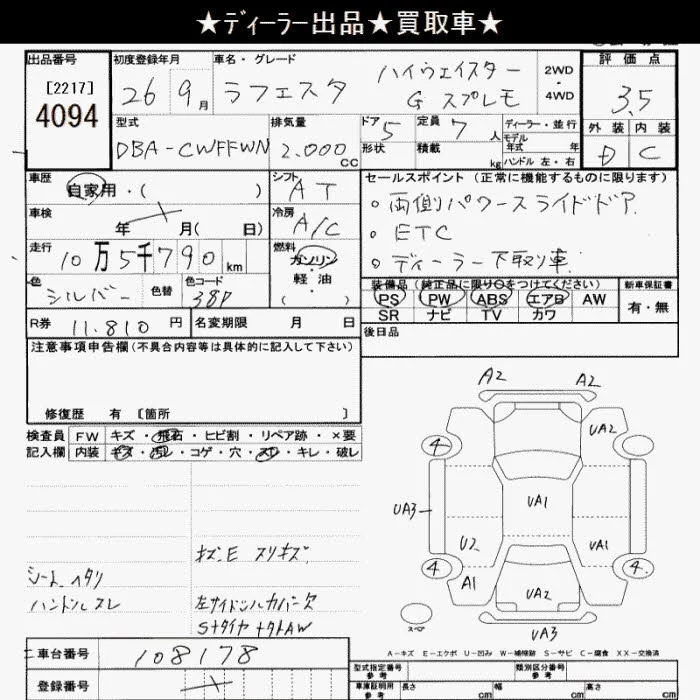 ★ディーラー出品★買取車★
出品番号
[2217]
4094
初度登録年月
26 9月
車名・グレード
ラフェスタ
ハイウェイスター
G スプレモ
2WD
・
4WD
評価点
3.5
外装 内装
D C
型式
DBA-CWFFWN
排気量
2.000cc
ドア 5
形状
定員 7人
積載 kg
ディーラー・並行
モデル
年式 年
ハンドル 左・右
車歴
自家用・( )
シフト
AT
セールスポイント(正常に機能するものに限ります)
。両側パワースライドドア
。ETC
。ディーラー下取り車
車検
年 月( 日)
冷房
A/C
走行
10万5千790km
燃料
ガソリン・
軽油
( ・ )
色
シルバー
色替
色コード
38P
装備品(純正品に限り○をつけてください)
PS PW ABS エアB AW
SR ナビ TV カワ
新車保証書
有・無
R券 11.810円
名変期限 月 日
後日品
注意事項申告欄(不具合内容等は具体的に記入して下さい)
修復歴 有 [箇所 ]
検査員
記入欄
FW キズ・飛石・ヒビ割・リペア跡・×要
内装 キズ・汚レ・コゲ・穴・スレ・キレ・破レ
シートヘタリ
ハンドルスレ
キズ.E スリキズ
左サイドシルカバー欠
S+タイヤ+タトAW
A2
A2
UA2
4
UA3
UA1
U2
UA1
4
A1
4
UA2
スペア
UA3
A-キズ E-エクボ U-凹み W-補修跡 S-サビ C-腐食 XX-交換済
車台番号
108178
登録番号
型式指定番号
参考
類別区分番号
参考
車庫証明用
参考
長さ cm 幅 cm 高さ cm